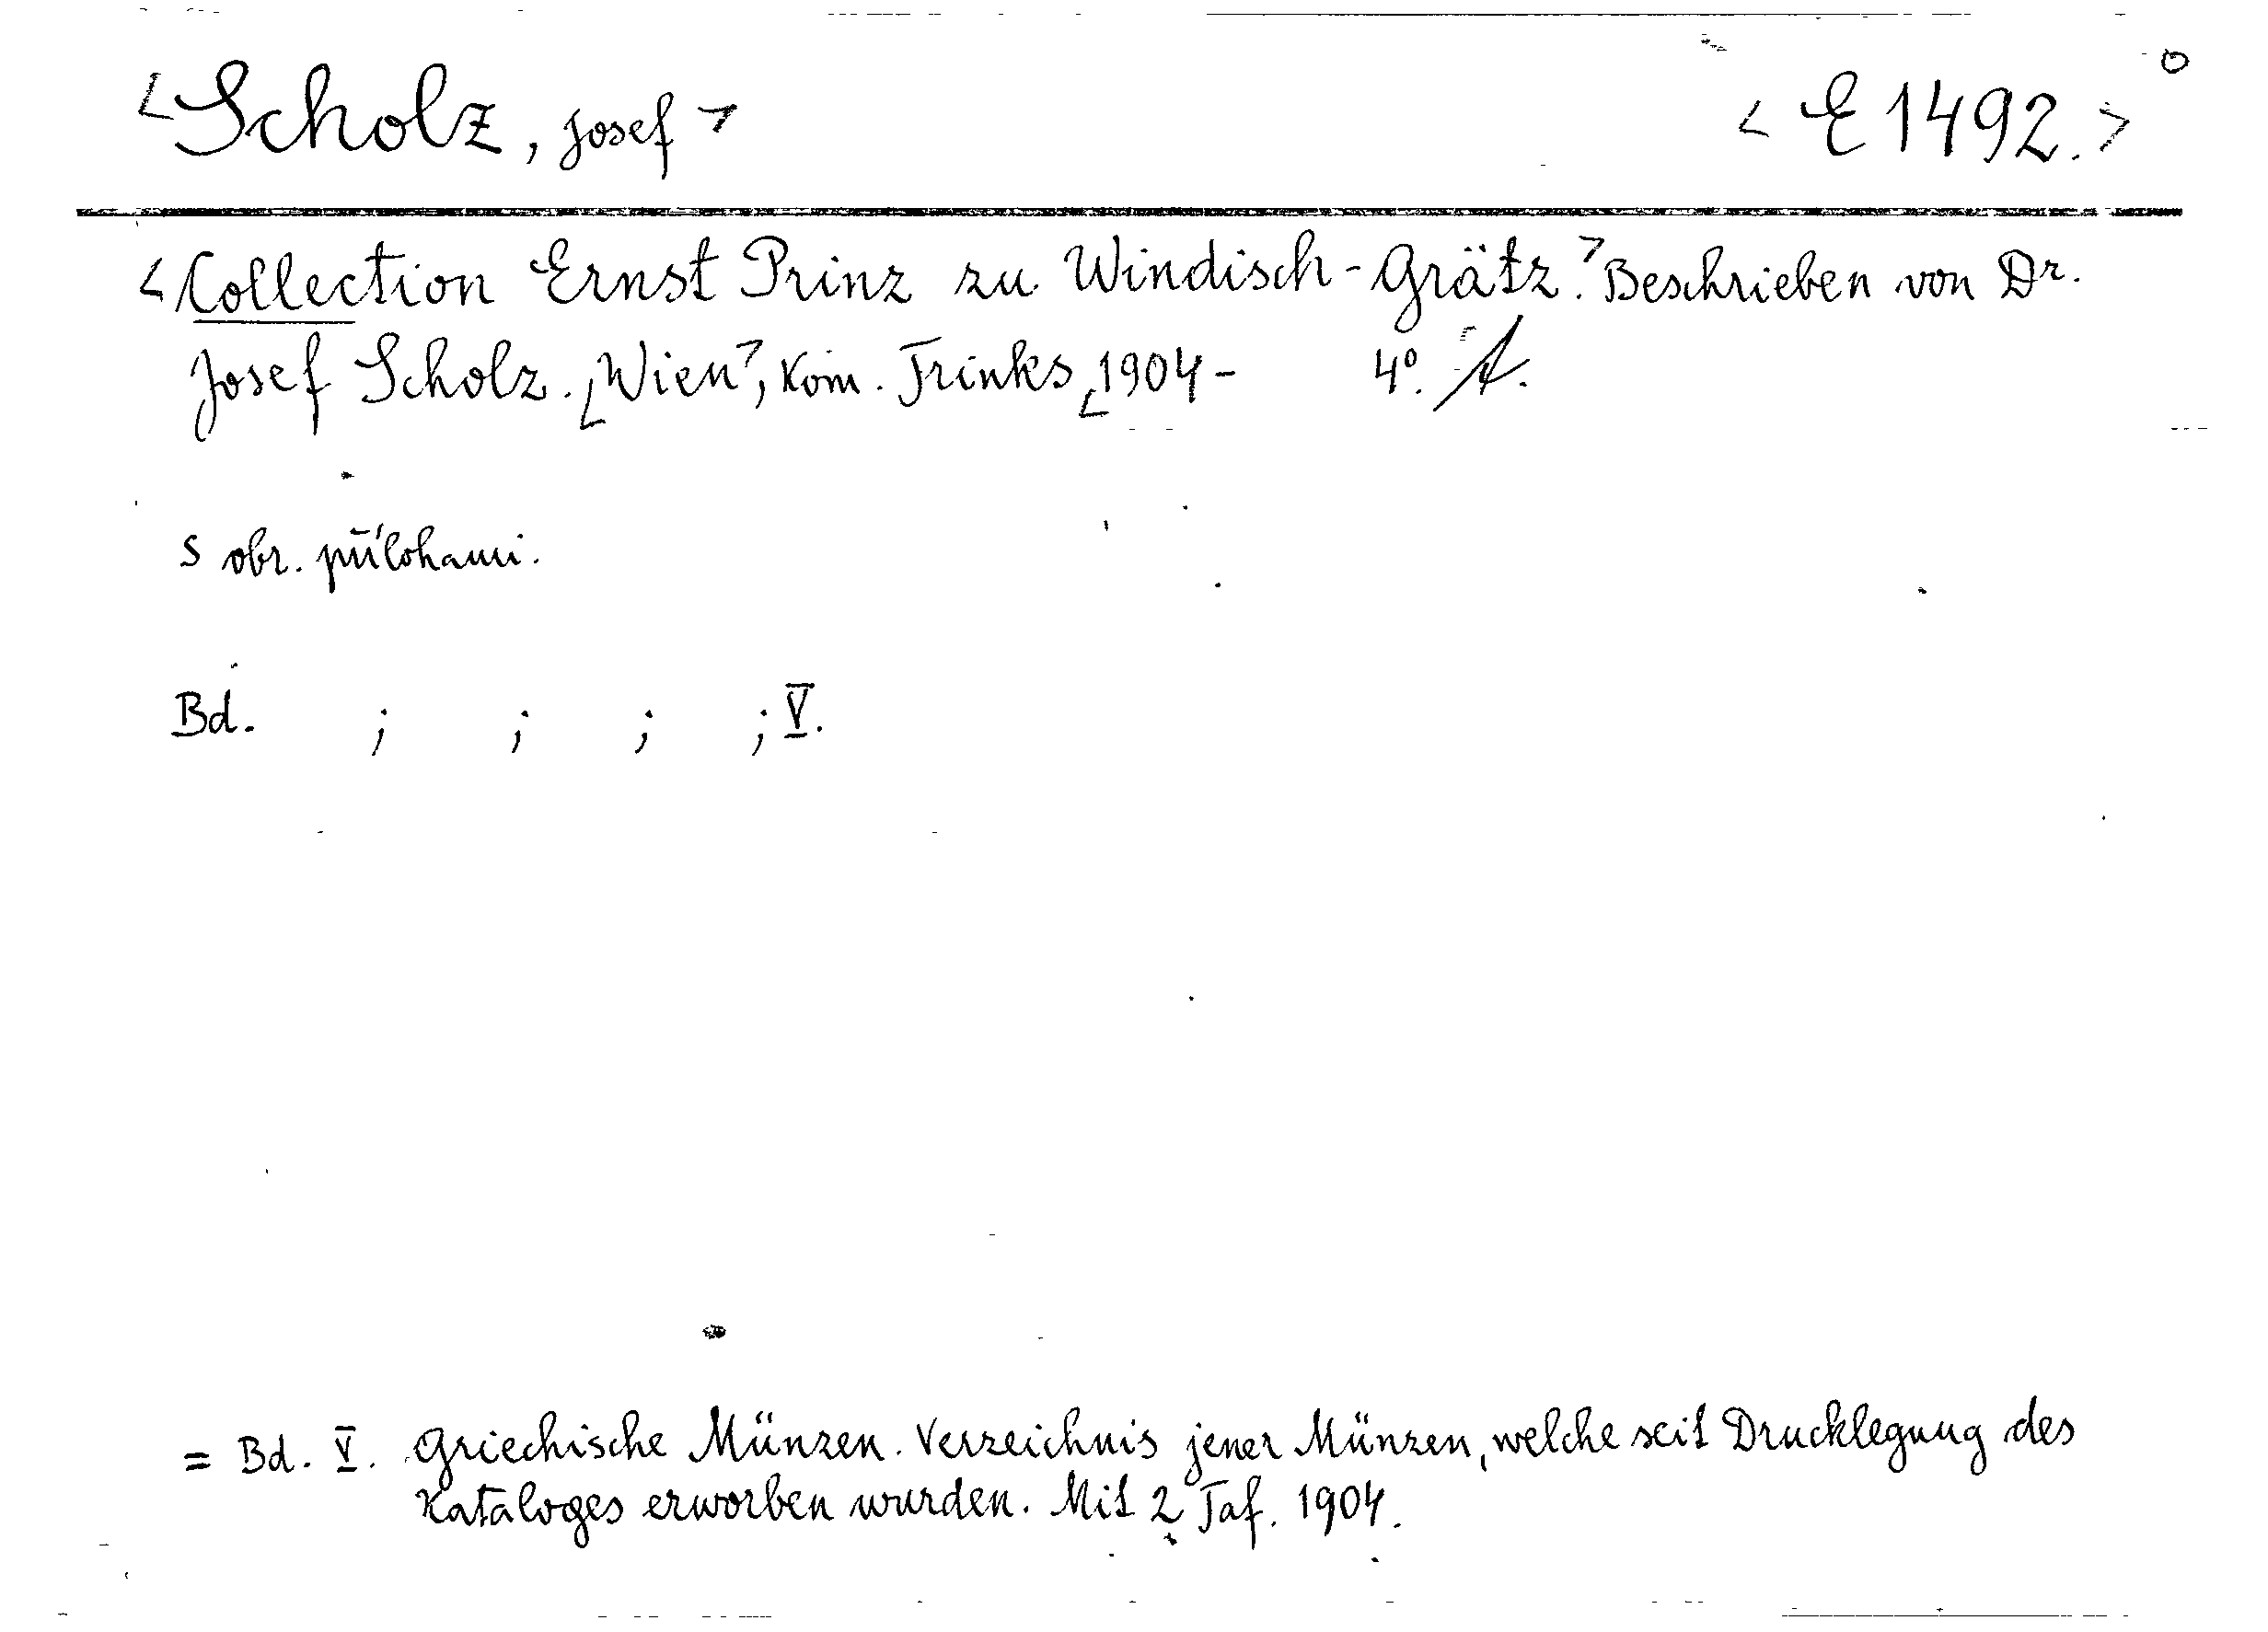 <Scholz, Josef> <E 1492.>
<Collection Ernst Prinz zu Windisch-Grätz.> Beschrieben von Dr.
Josef Scholz. <Wien>, Kom. Trinks, <1904- 4°. A.
s obr. přílohami.
Bd. ; ; ; ; V.
= Bd. V. Griechische Münzen. Verzeichnis jener Münzen, welche seit Drucklegung des
Kataloges erworben wurden. Mit 2 Taf. 1904.